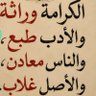 الكرامة وراثة
والأدب طبع،
والناس معادن،
والأصل غلاب.